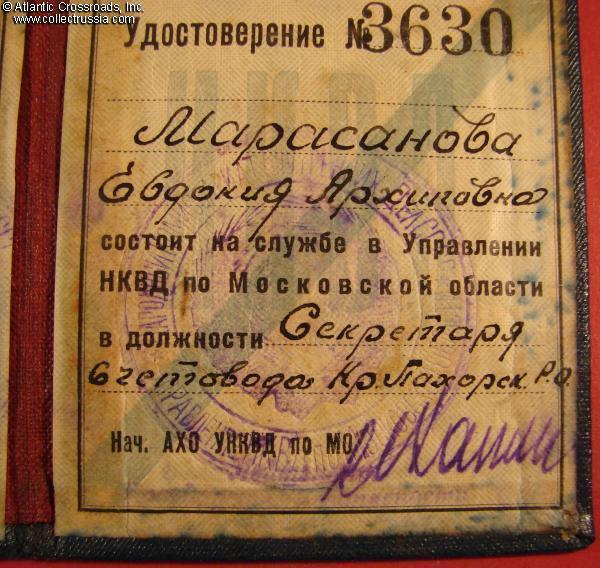 © Atlantic Crossroads, Inc.
www.collectrussia.com
Удостоверение № 3630
Марасанова
Евдокия Архиповна
состоит на службе в Управлении
НКВД по Московской области
в должности Секретаря
счетовода Кр.Пахорск. Р.О.
Нач. АХО УНКВД по МО